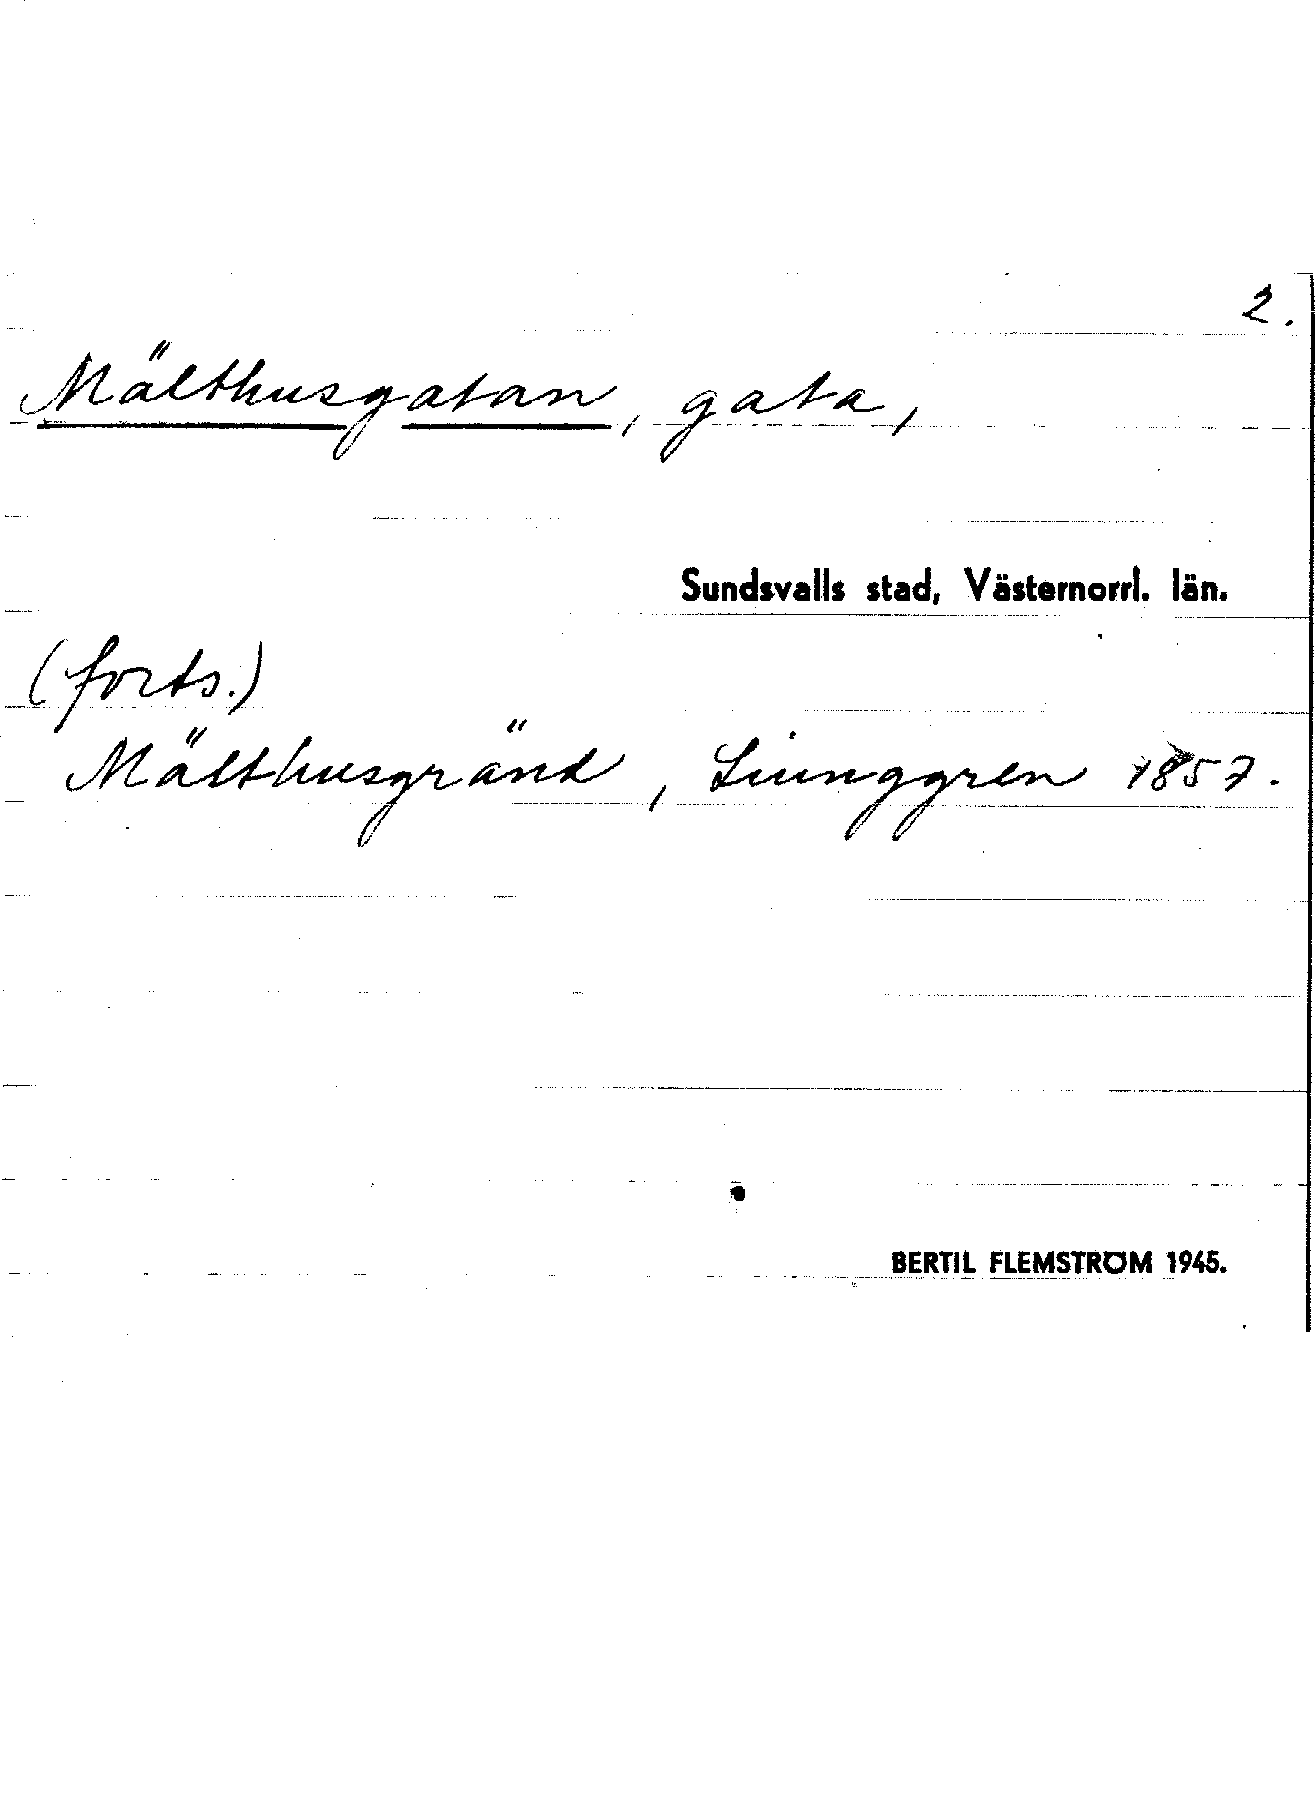 2.
Mälthusgatan, gata,
Sundsvalls stad, Västernorrl. län.
(forts.)
Mälthusgränd, Liunggren 1857.
BERTIL FLEMSTRÖM 1945.